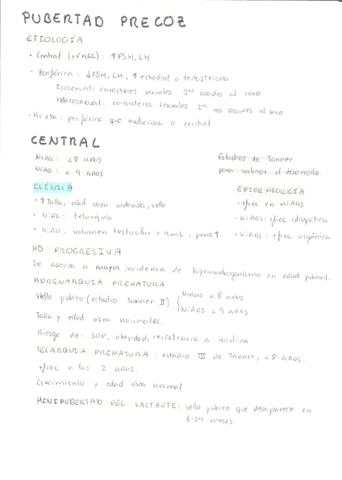 PUBERTAD PRECOZ
ETIOLOGÍA
· Central (+frec): ↑FSH, LH
· Periférica: ↓FSH, LH, ↑ estradiol o testosterona
Isosexual: caracteres sexuales 2º acordes al sexo
Heterosexual: caracteres sexuales 2º no acordes al sexo
· Mixta: periférica que evoluciona a central
CENTRAL
Niña: <8 años
Niño: <9 años
Estadios de Tanner
para valorar el desarrollo.
CLÍNICA
· ↑Talla, edad ósea, vello
· Niña: telarquia
· Niño: volumen testicular >4mL, pene↑
EPIDEMIOLOGÍA
· +frec en niñas
· Niñas: +frec idiopática
· Niños: +frec orgánica
NO PROGRESIVA
Se asocia a mayor incidencia de hiperandrogenismo en edad puberal.
ADRENARQUIA PREMATURA
Vello púbico (estadio Tanner II) { Niñas <8 años
Niños <9 años
Talla y edad ósea normales.
Riesgo de: SOP, obesidad, resistencia a insulina
TELARQUIA PREMATURA: estadio de Tanner, <8 años.
+frec a los 2 años.
Crecimiento y edad ósea normal
MINIPUBERTAD DEL LACTANTE: vello púbico que desaparece en
6-24 meses